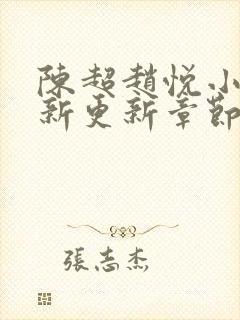 陳超趙悅小
新更新章節
張志杰